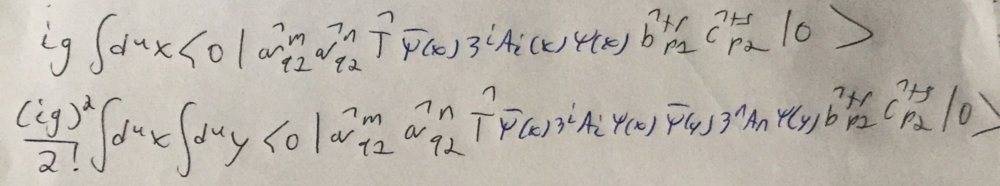 ig ∫d⁴x <0| â^m_q2 â^n_q2 T̂ ψ̄(x) 3^i A_i(x) ψ(x) b̂^+r_p1 ĉ^+s_p2 |0>
(ig)²/2! ∫d⁴x ∫d⁴y <0| â^m_q2 â^n_q2 T̂ ψ̄(x) 3^i A_i ψ(x) ψ̄(y) 3^n A_n ψ(y) b̂^+r_p2 ĉ^+s_p2 |0>